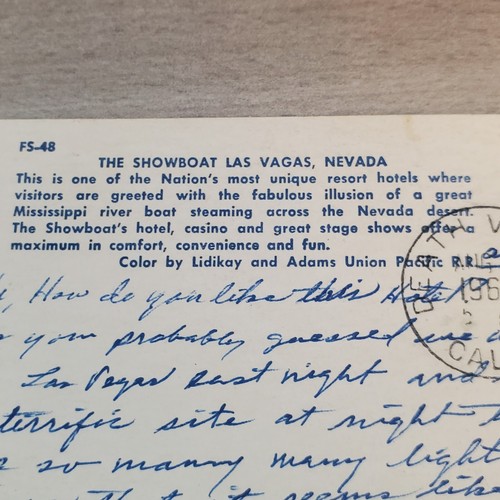 FS-48
THE SHOWBOAT LAS VAGAS, NEVADA
This is one of the Nation's most unique resort hotels where
visitors are greeted with the fabulous illusion of a great
Mississippi river boat steaming across the Nevada desert.
The Showboat's hotel, casino and great stage shows offer a
maximum in comfort, convenience and fun.
Color by Lidikay and Adams Union Pacific R.R.
DEATH V
196
CAL
How do you like this Hotel
you probably guessed we
Las Vegas last night and
terrific site at night
so many many light
it seems like